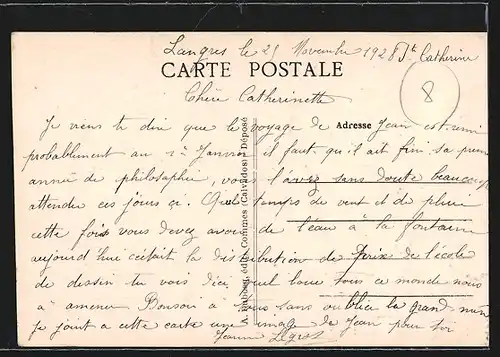 Langres le 25 Novembre 1928 St Catherine
CARTE POSTALE
8
Chère Catherinette
Adresse
Je viens te dire que le voyage de Jean est remi
probablement au 1r Janvier il faut qu'il ait fini sa première
année de philosophie, vous l'avez sans doute beaucoup
attendu ces jours ci. Quel temps de vent et de pluie
cette fois vous devez avoir de l'eau à la fontaine
aujourd'hui c'était la distribution de prix de l'école
de dessin tu vois d'ici quel tout ce monde nous
a amener Bonsoir à vous sans oublier la grand mère
je joint a cette carte une image de Jean pour toi
Jeanne
A. Dubosq, édit., Commes (Calvados) Déposé